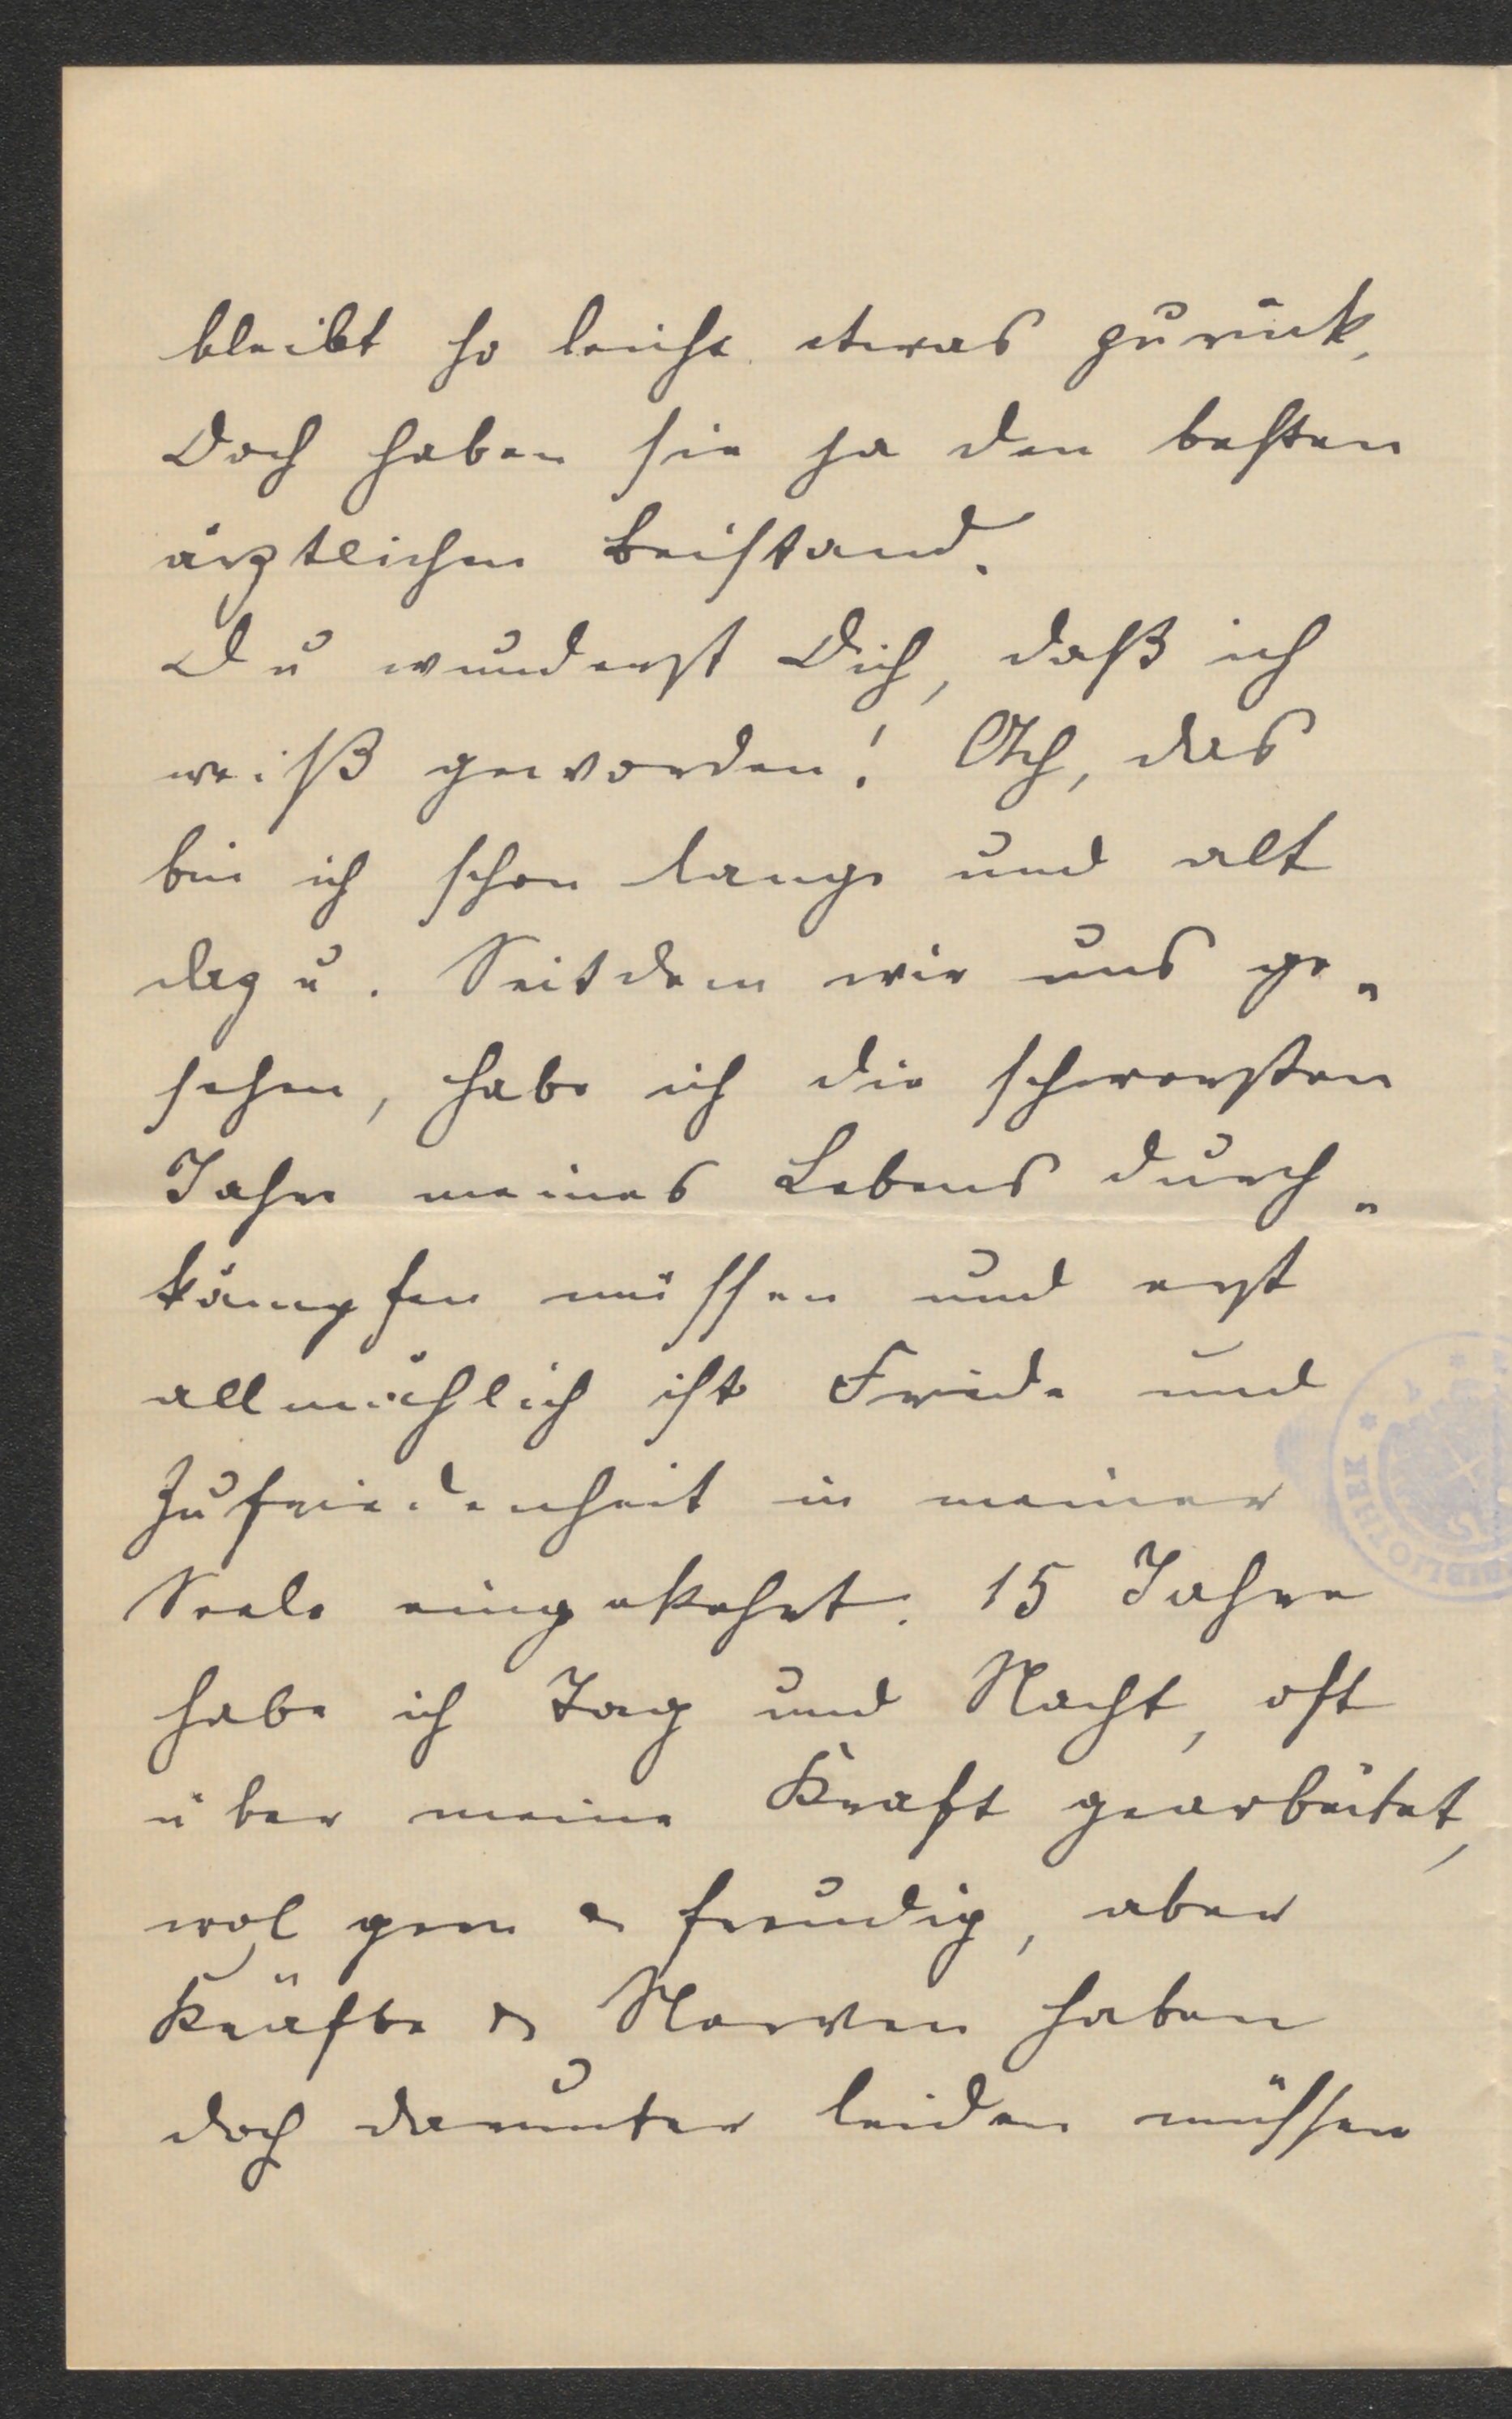 bleibt so leicht etwas zurück,
Doch haben sie ja den besten
ärztlichen Beistand.
Du wunderst Dich, daß ich
weiß geworden! Ach, das
bin ich schon lange und alt
dazu. Seitdem wir uns ge„
sehen, habe ich die schwersten
Jahre meines Lebens durch„
kämpfen müssen und erst
allmählich ist Friede und
Zufriedenheit in meiner
Seele eingekehrt. 15 Jahre
habe ich Tag und Nacht, oft
über meine Kraft gearbeitet,
wol gern & freudig, aber
Kräfte & Nerven haben
doch darunter leiden müssen
BIBLIOTHEK